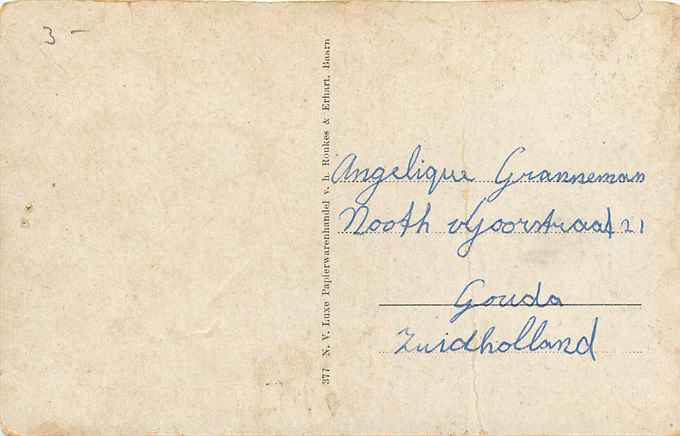 3 -
377 N. V. Luxe Papierwarenhandel v. h. Roukes & Erhart, Baarn
Angelique Granneman
Nooth v Goorstraat 21
Gouda
Zuidholland